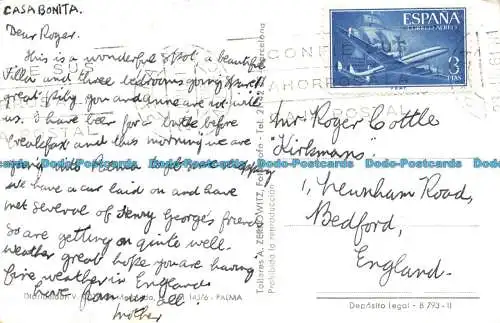 CASA BONITA.
Dear Roger.
This is a wonderful spot, a beautiful
Villa and three bedrooms going
great pity you and Anne are not with
us. I have been for a bathe before
breakfast and this morning we are
going into Palma
We have a car laid on and have
met several of Henry George's friends
So are getting on quite well.
Weather great hope you are having
fine weather in England
Love from us all.
Mother
ESPAÑA
CORREO AEREO
3
PTAS
Mr Roger Cottle
"Kirkmans"
1, Newnham Road,
Bedford,
England.
Talleres A. ZERKOWITZ, Fotógrafo - Tel. Barcelona
Prohibida la reproducción
143/6 - PALMA
Depósito Legal - B 793-II
Dodo-Postcards Dodo-Postcards Dodo-Postcards Dodo-Postcards Dodo-Postcards